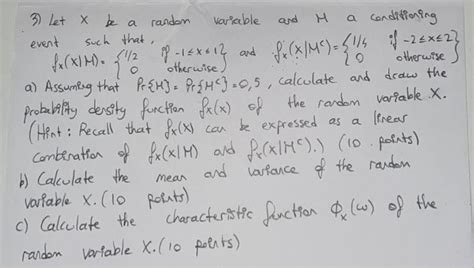 3) Let X be a random variable and M a conditioning
event such that,
fx(x|M) = {1/2 if -1≤x≤1 0 otherwise} and fx(x|Mᶜ) = {1/4 if -2≤x≤2 0 otherwise}
a) Assuming that Pr{M} = Pr{Mᶜ} = 0,5, calculate and draw the
probability density function fx(x) of the random variable X.
(Hint: Recall that fx(x) can be expressed as a linear
combination of fx(x|M) and fx(x|Mᶜ).) (10 points)
b) Calculate the mean and variance of the random
variable X. (10 points)
c) Calculate the characteristic function Φx(ω) of the
random variable X. (10 points)